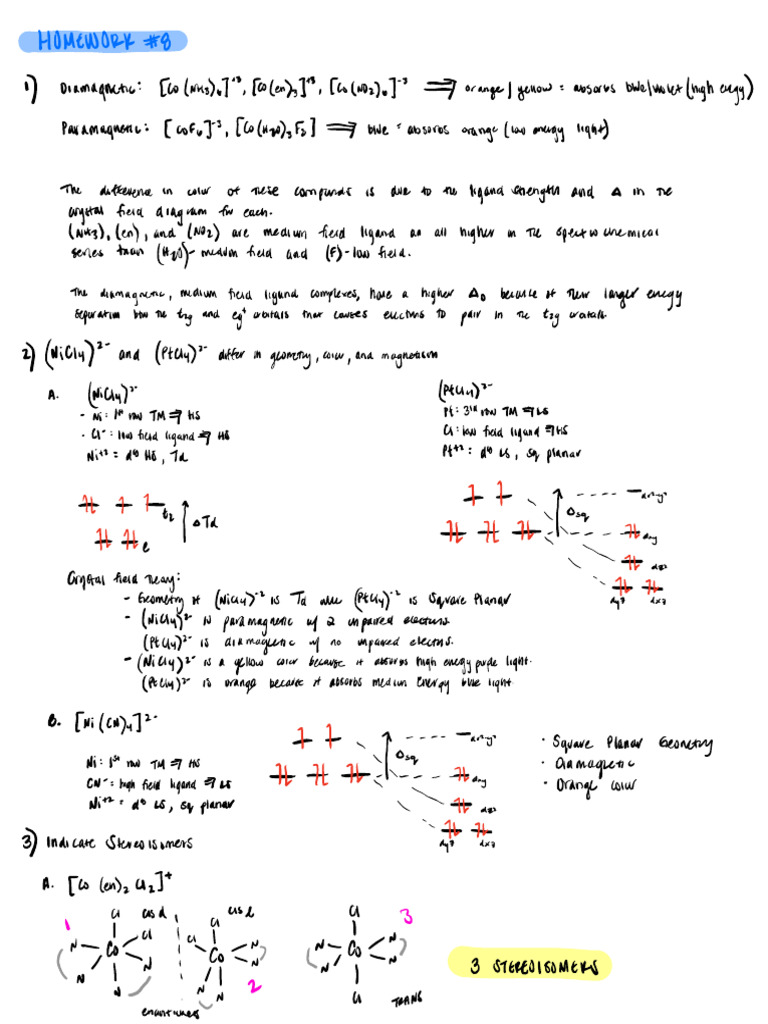 HOMEWORK #8
1) Diamagnetic: [Co(NH3)6]+3, [Co(en)3]+3, [Co(NO2)6]-3 ⟹ orange/yellow = absorbs blue/violet (high energy)
Paramagnetic: [CoF6]-3, [Co(H2O)3F3] ⟹ blue = absorbs orange (low energy light)
The difference in color of these compounds is due to the ligand strength and Δ in the
crystal field diagram for each.
(NH3), (en), and (NO2) are medium field ligand an all higher in the spectrochemical
series than (H2O)- medium field and (F)- low field.
The diamagnetic, medium field ligand complexes, have a higher Δo because of their larger energy
separation btw the t2g and eg* orbitals that causes electrons to pair in the t2g orbitals.
2) (NiCl4)2- and (PtCl4)2- differ in geometry, color, and magnetism
A. (NiCl4)2-
- Ni: 1st row TM ⟹ HS
- Cl-: low field ligand ⟹ HS
Ni+2 = d8 HS, Td
t2
ΔTd
e
(PtCl4)2-
Pt: 3rd row TM ⟹ LS
Cl: low field ligand ⟹ HS
Pt+2: d8 LS, sq planar
Δsq
dxy
dz2
dyz dxz
Crystal field theory:
- Geometry of (NiCl4)-2 is Td while (PtCl4)-2 is Square Planar
- (NiCl4)2- is paramagnetic w/ 2 unpaired electrons.
(PtCl4)2- is diamagnetic w/ no unpaired electrons.
- (NiCl4)2- is a yellow color because it absorbs high energy purple light.
(PtCl4)2- is orange because it absorbs medium energy blue light.
B. [Ni(CN)4]2-
Ni: 1st row TM ⟹ HS
CN-: high field ligand ⟹ LS
Ni+2 = d8 LS, sq planar
Δsq
dxy
dz2
dyz dxz
· Square Planar Geometry
· Diamagnetic
· Orange color
3) Indicate Stereoisomers
A. [Co(en)2Cl2]+
1 Cl cis d Cl N Co N N N
cis l Cl Cl Co N N N N 2
enantiomers
Cl 3 N Co N N N Cl TRANS
3 STEREOISOMERS